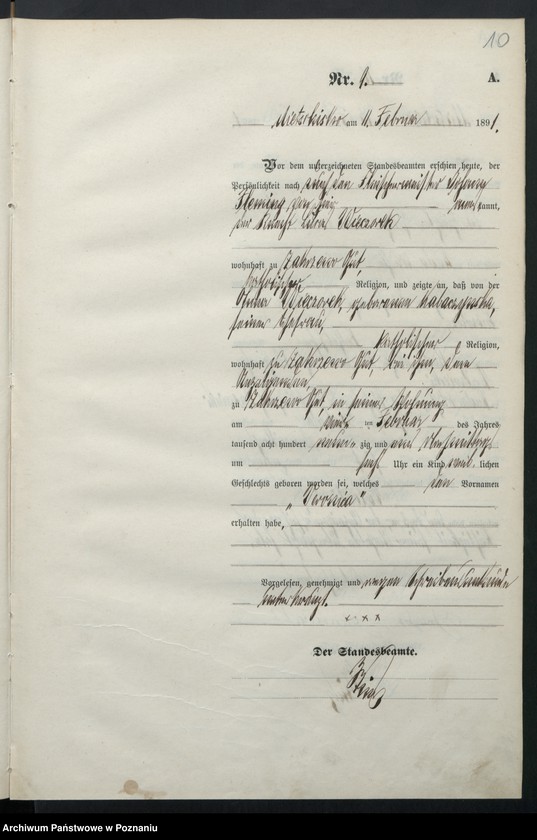 10
Nr. 9. A.
am 11. Februar 1891.
Vor dem unterzeichneten Standesbeamten erschien heute, der
Persönlichkeit nach durch den Fleischermeister
Fleming von hier kannt,
der Wieczorek
wohnhaft zu Zakrzewo Gut,
katholischer Religion, und zeigte an, daß von der
Wieczorek, geborenen
seiner Ehefrau,
katholischer Religion,
wohnhaft zu Zakrzewo Gut, bei ihm, dem
Anzeigenden,
zu Zakrzewo Gut, in seiner Wohnung
am ten Februar des Jahres
tausend acht hundert neunzig und ein Vormittags
um fünf Uhr ein Kind weiblichen
Geschlechts geboren worden sei, welches den Vornamen
„Veronica"
erhalten habe.
Vorgelesen, genehmigt und wegen Schreibensunkunde
unterkreuzt.
x x x
Der Standesbeamte.
Archiwum Państwowe w Poznaniu